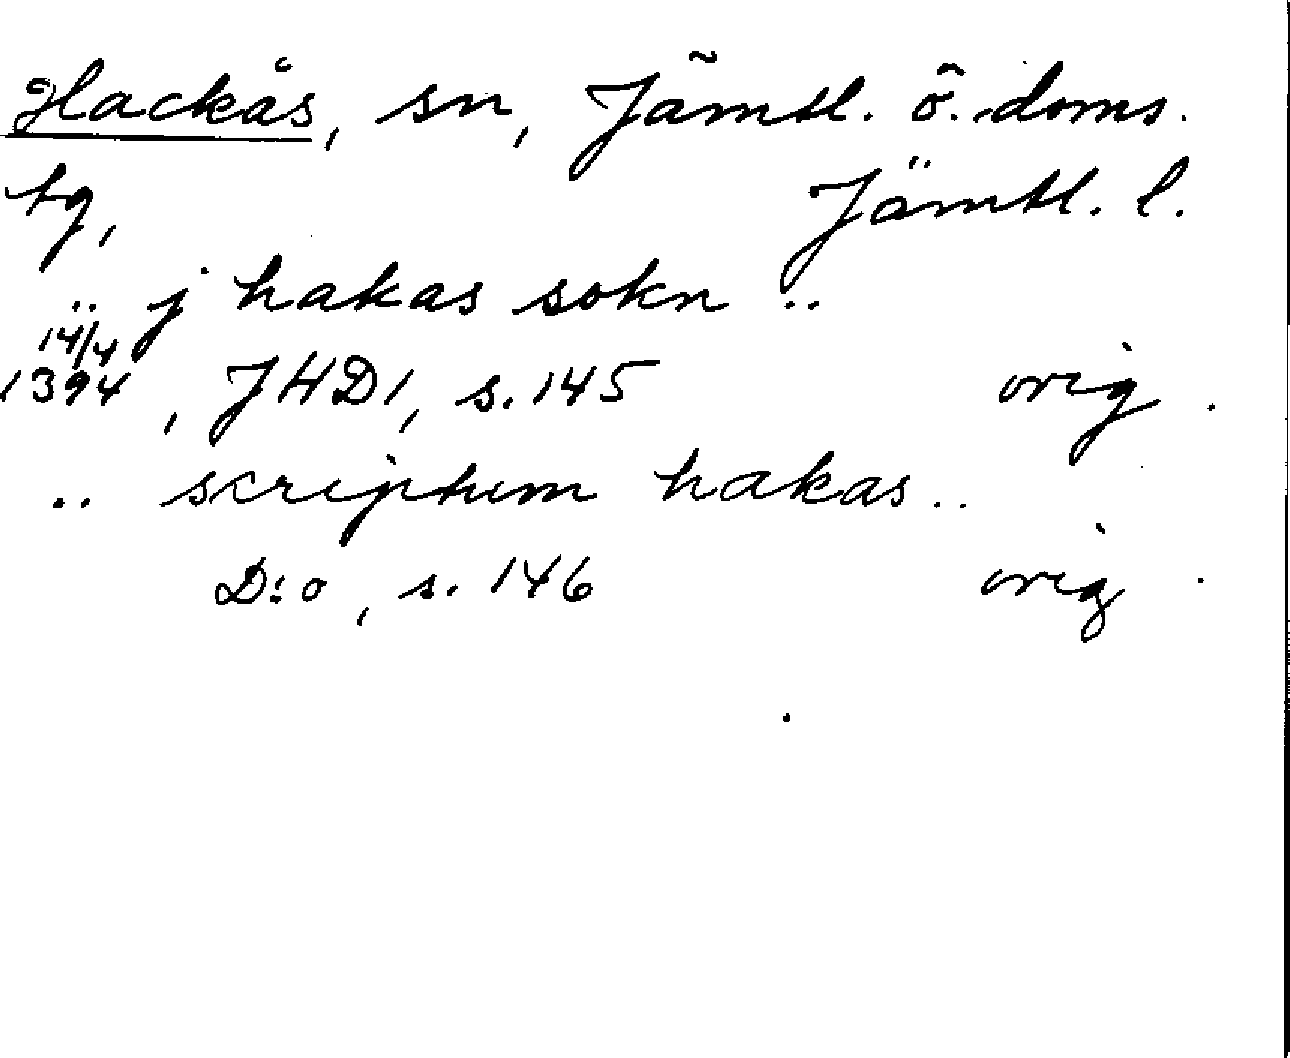 Hackås, sn, Jämtl. ö. doms.
tg, Jämtl. l.
.. j hakas sokn ..
14/4
1394, JHD1, s. 145 orig.
.. scriptum hakas ..
D:o, s. 146 orig.